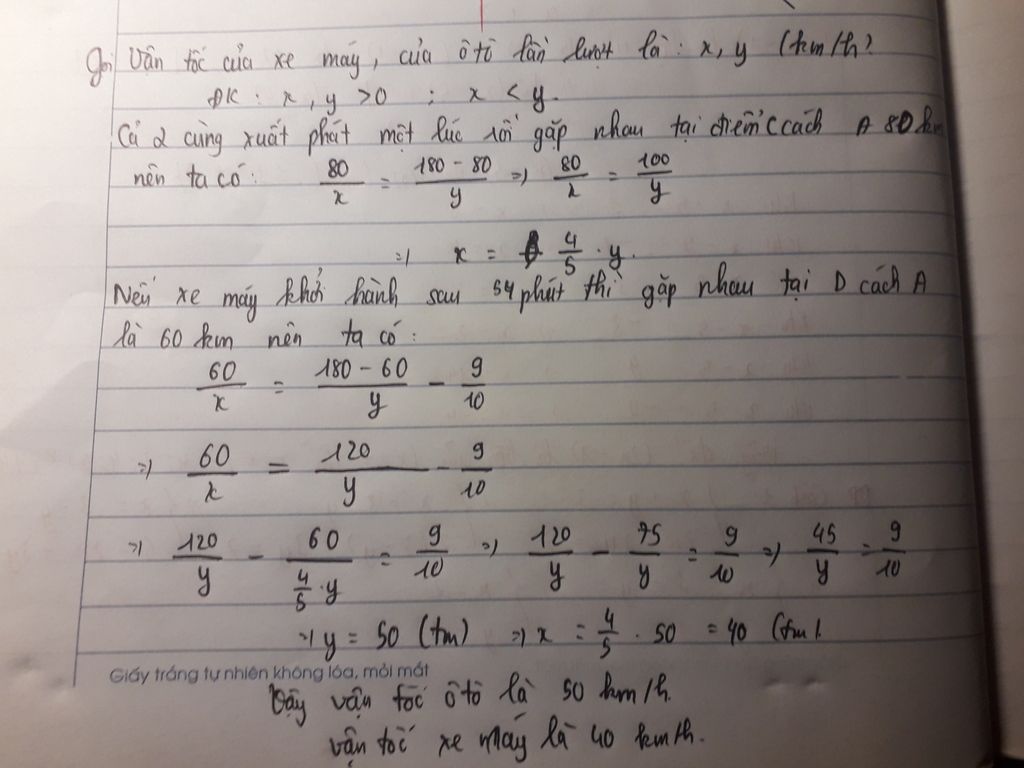 Gọi vận tốc của xe máy, của ô tô lần lượt là : x, y (km/h)
ĐK : x, y >0 ; x < y.
Cả 2 cùng xuất phát một lúc rồi gặp nhau tại điểm C cách A 80 km
nên ta có: 80/x = (180 - 80)/y => 80/x = 100/y
=> x = 4/5 . y.
Nếu xe máy khởi hành sau 54 phút thì gặp nhau tại D cách A
là 60 km nên ta có :
60/x = (180 - 60)/y - 9/10
=> 60/x = 120/y - 9/10
=> 120/y - 60/(4/5 . y) = 9/10 => 120/y - 75/y = 9/10 => 45/y = 9/10
=> y = 50 (tm) => x = 4/5 . 50 = 40 (tm).
Giấy trắng tự nhiên không lóa, mỏi mắt
Vậy vận tốc ô tô là 50 km/h.
vận tốc xe máy là 40 km/h.